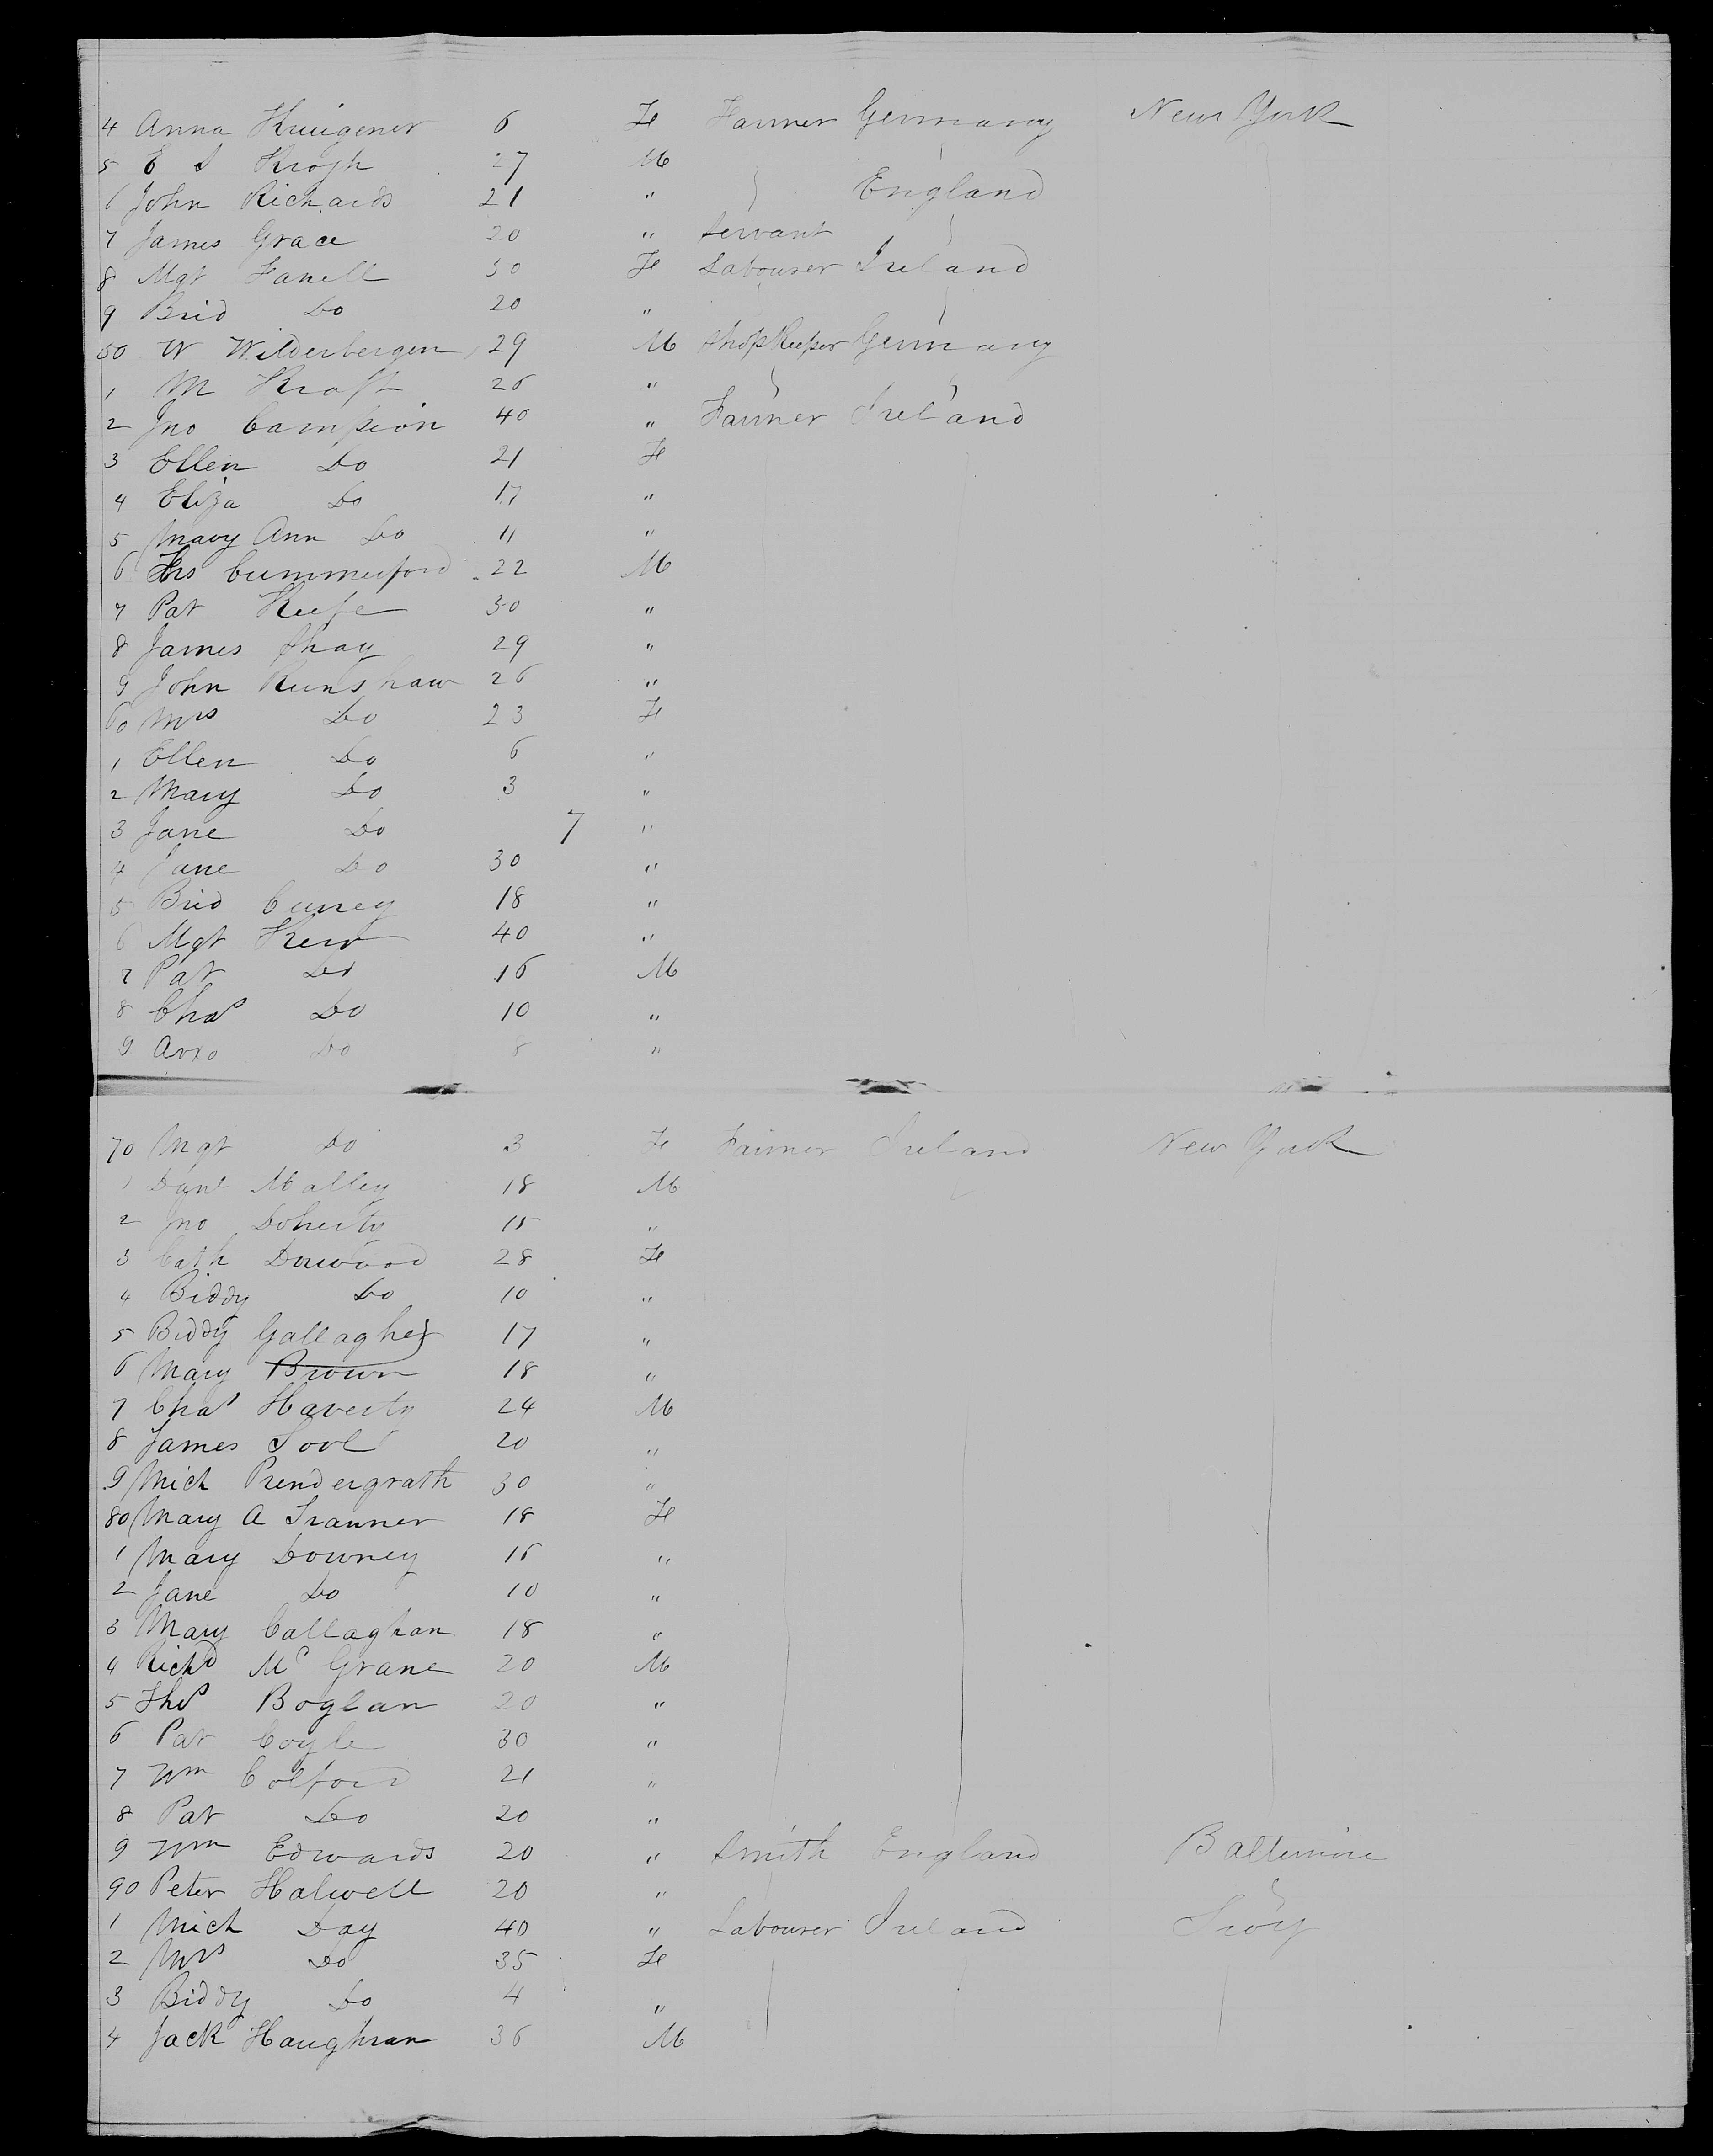 4 Anna Kruigener 6 Fe Farmer Germany New York
5 E S Krogh 27 M
6 John Richards 21 " England
7 James Grace 20 " Servant
8 Mgt Farrell 30 Fe Labourer Ireland
9 Brid Do 20 "
50 W Wilderbergen 29 M Shop Keeper Germany
1 M Kraft 26 "
2 Jno Campion 40 " Farmer Ireland
3 Ellen Do 21 Fe
4 Eliza Do 17 "
5 Mary Ann Do 11 "
6 Ths Cummerford 22 M
7 Pat Keefe 30 "
8 James Shay 29 "
9 John Runshaw 26 "
60 Mrs Do 23 Fe
1 Ellen Do 6 "
2 Mary Do 3 "
3 Jane Do 7 "
4 Jane Do 30 "
5 Brid Currey 18 "
6 Mgt Kerr 40 "
7 Pat Do 16 M
8 Chas Do 10 "
9 Do 8 "
70 Mgt Do 3 Fe Farmer Ireland New York
1 Danl Malley 18 M
2 Jno Doherty 15 "
3 Cath 28 Fe
4 Biddy Do 10 "
5 Biddy Gallagher 17 "
6 Mary Brown 18 "
7 Chas Haverty 24 M
8 James Tool 20 "
9 Mich Prendergrath 30 "
80 Mary A Tranner 18 Fe
1 Mary Downey 16 "
2 Jane Do 10 "
3 Mary Callaghan 18 "
4 Richd Mc Grane 20 M
5 Ths Boglan 20 "
6 Pat Coyle 30 "
7 Wm Colford 21 "
8 Pat Do 20 "
9 Wm Edwards 20 " Smith England Baltimore
90 Peter Halwell 20 "
1 Mich Day 40 " Labourer Ireland Troy
2 Mrs Do 35 Fe
3 Biddy Do 4 "
4 Jack Haughran 36 M